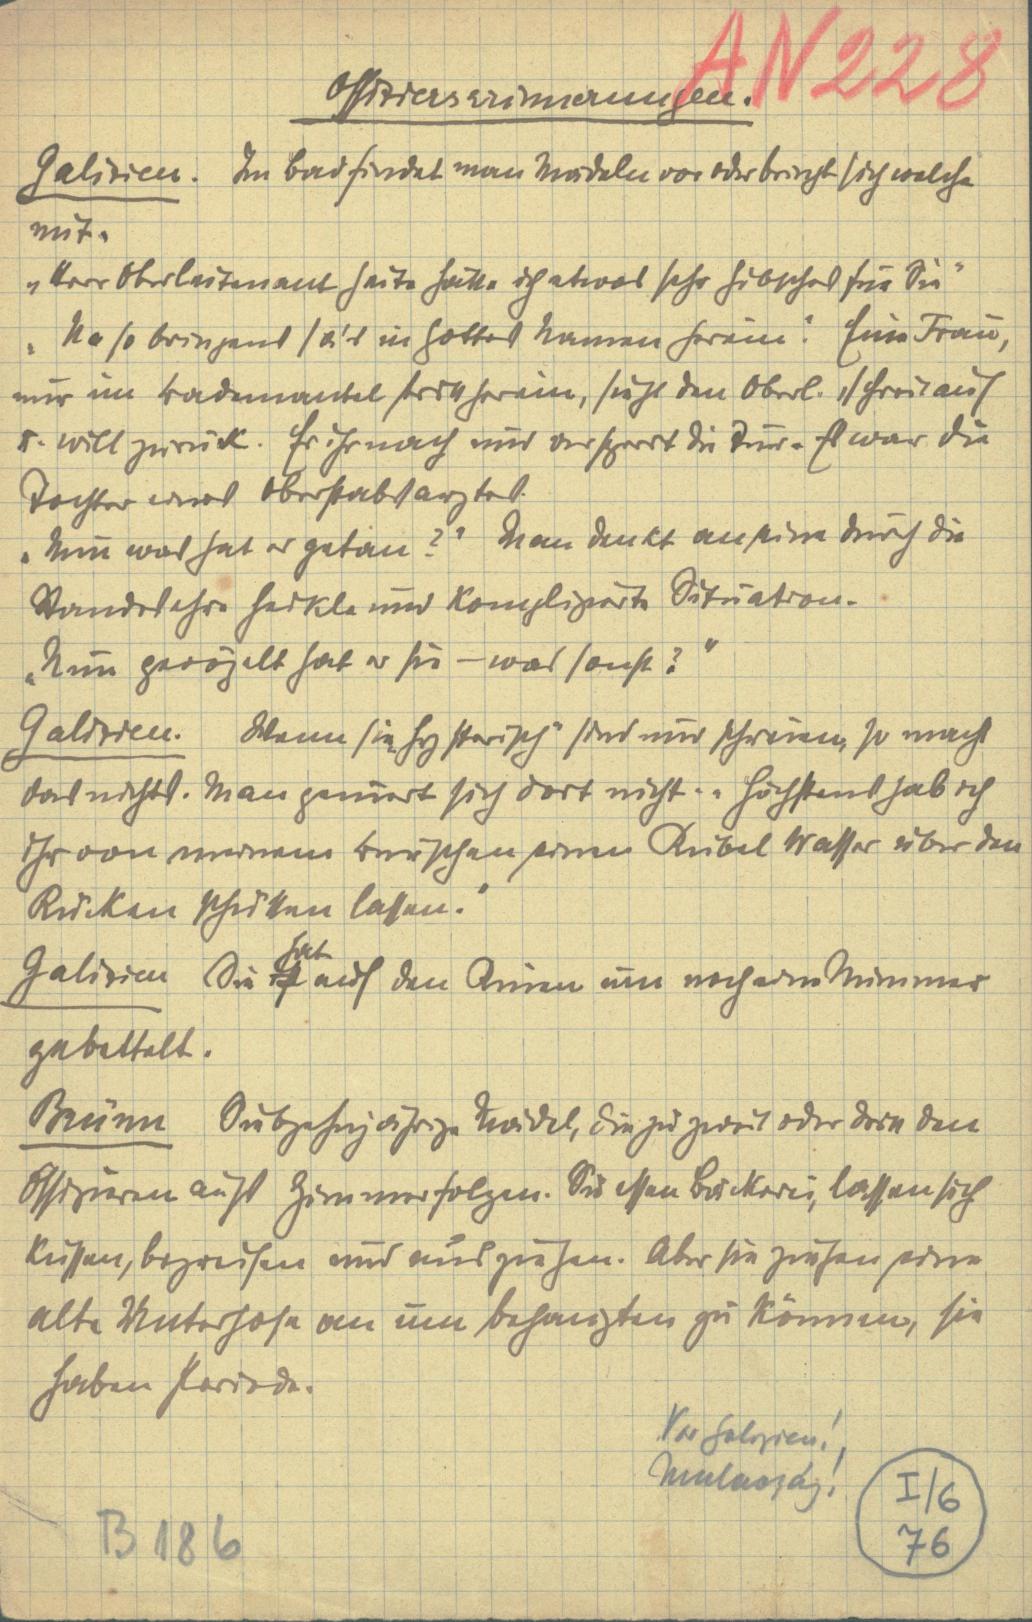 AN 228
Offizierserinnerungen.
Galizien. Im Bad findet man Mädeln vor oder bringt sich welche
mit.
„Herr Oberleitenant heite hätte ich etwas sehr hübsches für Sie“
„Na so bringens sö's in Gottes Namen herein“. Eine Frau,
nur im Bademantel tritt herein, sieht den Oberl. schreit auf
u. will zurück. Er ihr nach und versperrt die Tür. Es war die
Tochter eines Oberstabsarztes.
„Nun was hat er getan?“ Man denkt an eine durch die
Standesehre heikle und komplizierte Situation.
„Nun gevögelt hat er sie – was sonst?“
Galizien. Wenn sie „hysterisch“ sind und schreien, so macht
das nichts. Man geniert sich dort nicht. „Höchstens hab ich
ihr von meinem Burschen einen Kübel Wasser über den
Rücken schütten lassen.“
Galizien Sie hat auf den Knien um noch eine Nummer
gebettelt.
Brünn Siebzehnjährige Mädel, die zu zweit oder dritt den
Offizieren aufs Zimmer folgen. Sie essen Bäckerei, lassen sich
küssen, begreifen und ausziehen. Aber sie ziehen eine
alte Unterhose an um behaupten zu können, sie
haben Periode.
Vor Galizien!
I/6
76
B 186